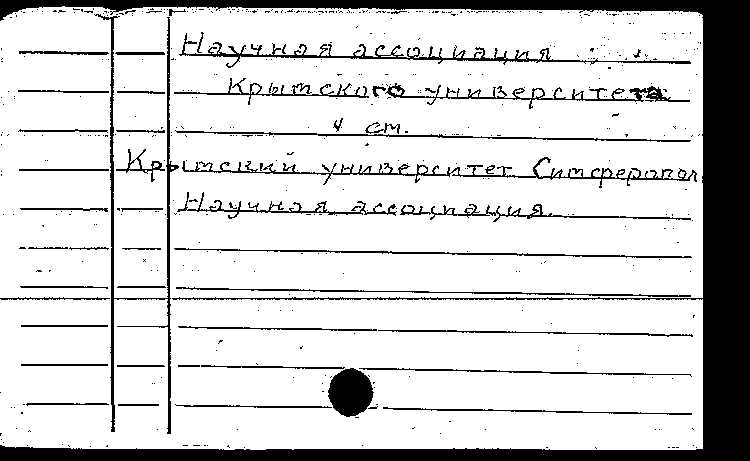 Научная ассоциация
Крымского университета
см.
Крымский университет Симферопол
Научная ассоциация.